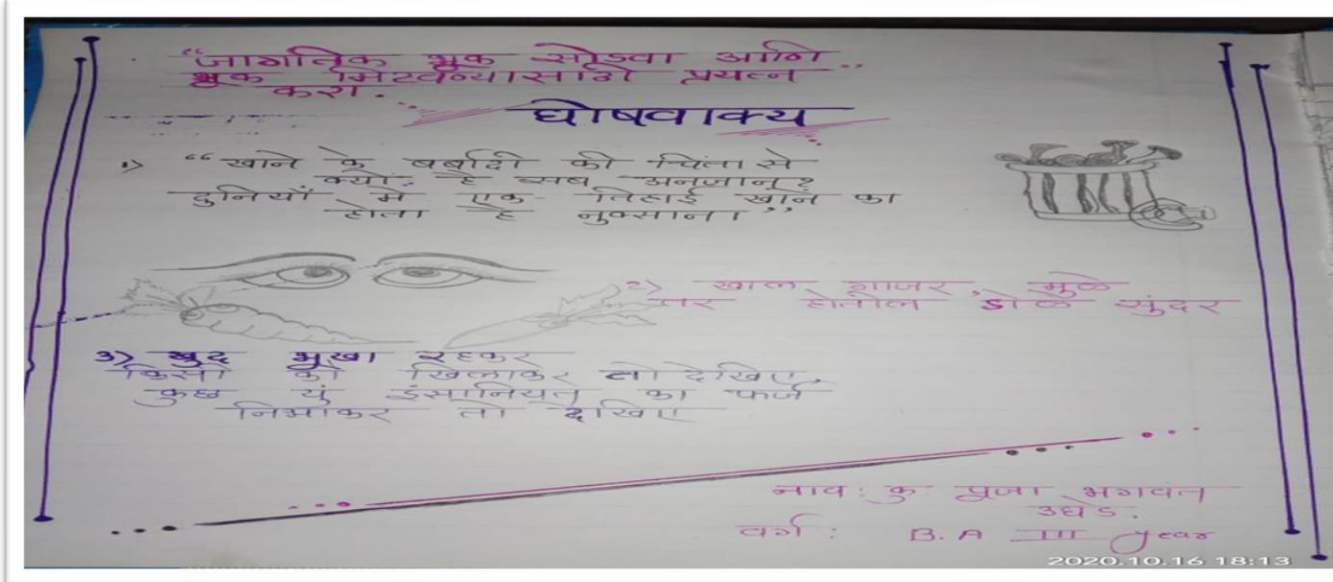 “जागतिक भूक सोडवा आणि
भूक मिटवण्यासाठी प्रयत्न”
करा.
घोषवाक्य
१) “खाने के बर्बादी की चिंता से
क्यो है सब अनजान?
दुनियाँ मे एक तिहाई खाने का
होता है नुकसान।”
२) खाल गाजर, मुळे
तर होतील डोळे सुंदर
३) खुद भूखा रहकर
किसी को खिलाकर तो देखिए,
कुछ यूं इंसानियत का फर्ज
निभाकर तो देखिए
नाव : कु. पूजा भगवंत
उघडे.
वर्ग : B.A III year
2020.10.16 18:13